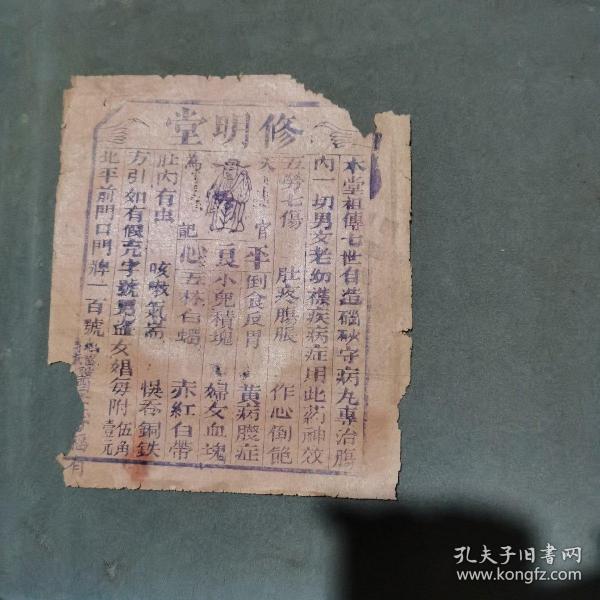 修明堂
本堂祖傳七世自造磠砂字病丸專治腸
內一切男女老幼襍疾病症用此葯神效
五勞七傷 肚疼腸脹 作心倒飽
天 官 平 倒食反胃 黃病腹症
夏 小兒積塊 婦女血塊
為 記 心 五淋白蠋 赤紅白帶
肚內有虫 咳嗽氣喘 悞吞銅鉄
方引如有假充字號男盗女娼每附伍角
北平前門口門牌一百號 壹元
有
孔夫子旧书网
www.kongfz.com